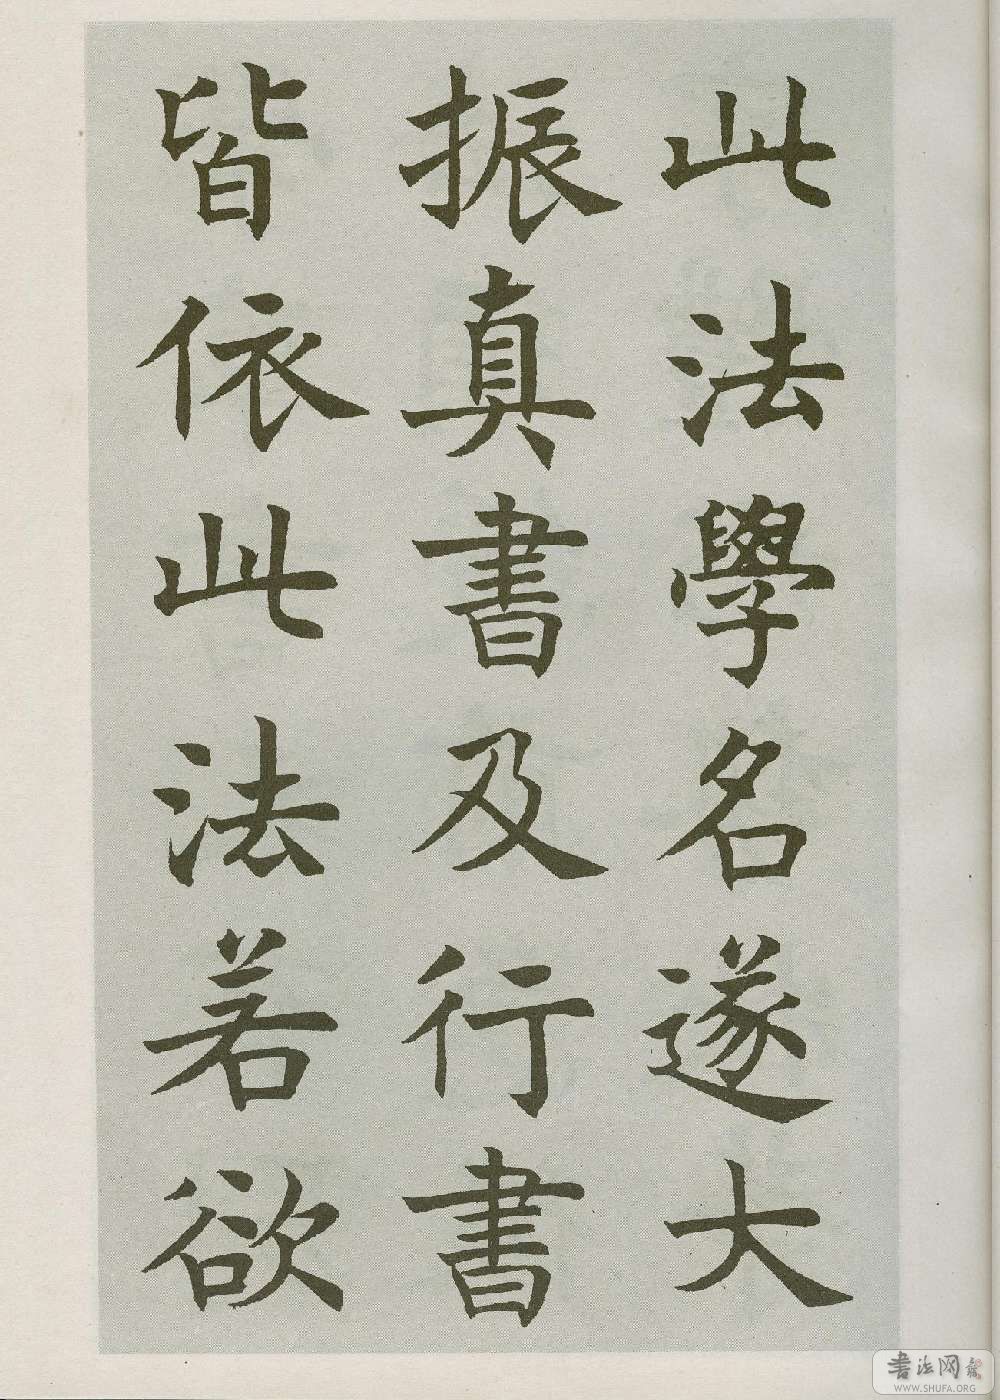 此法學名遂大
振真書及行書
皆依此法若欲
書法网
WWW.SHUFA.ORG